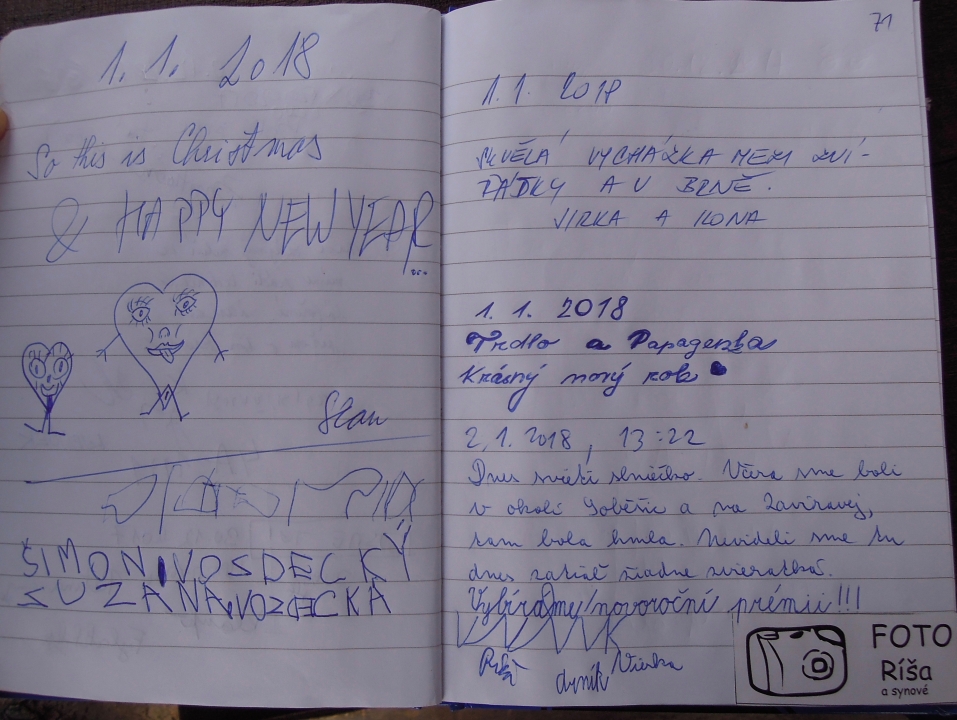 1. 1. 2018
So this is Christmas
& HAPPY NEW YEAR...
Stan
ŠIMON VOSDECKÝ
SUZANA VOZDECKÁ
71
1.1. 2018
SKVĚLÁ VYCHÁZKA MEZI ZVÍ-
ŘÁTKY A V BRNĚ.
JIRKA A ILONA
1. 1. 2018
Trdlo a Papagenka
Krásný nový rok
2.1. 2018, 13:22
Dnes svieti slniečko. Včera sme boli
v okolí Soběšic a na
tam bola hmla. Nevideli sme tu
dnes zatiaľ žiadne zvieratká.
Vybíráme novoroční prémii!!!
Ríša
drsník Vierka
FOTO
Ríša
a synové